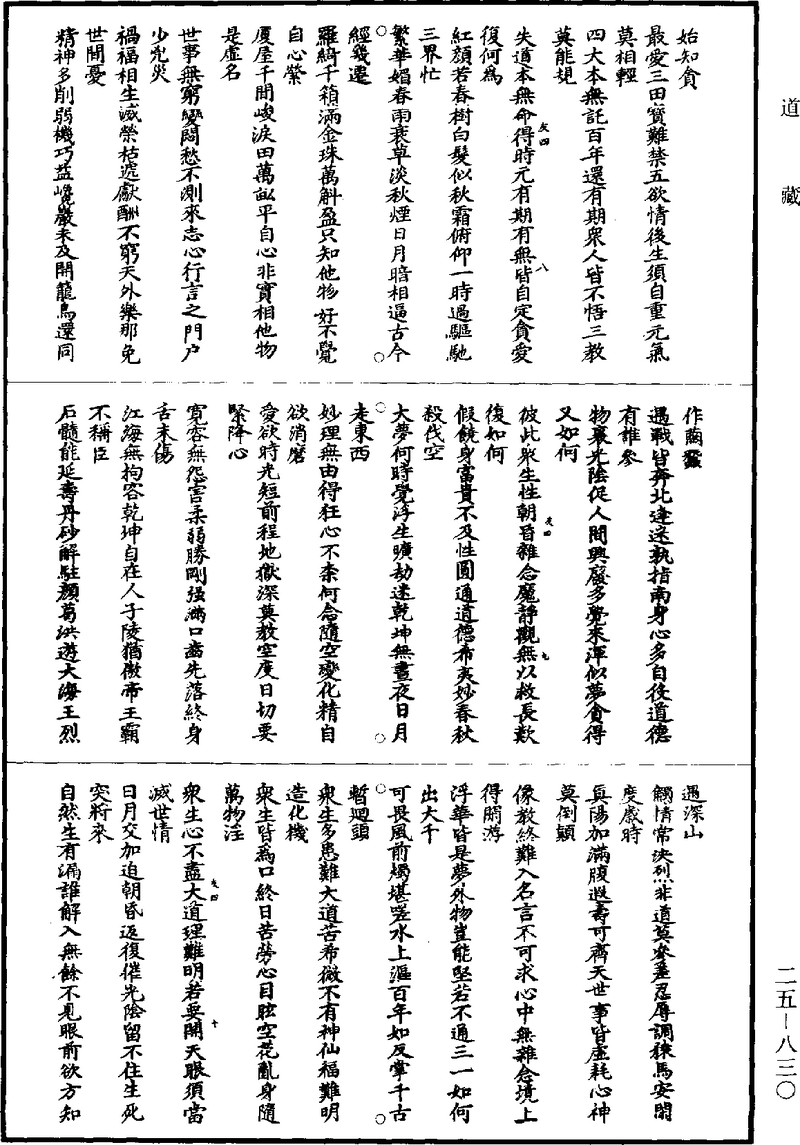 道藏
始知貪
最愛三田寶難禁五欲情後生須自重元氣
莫相輕
四大本無託百年還有期衆人皆不悟三教
莫能規
失道本無命得時元有期有無皆自定貪愛
復何為
紅顏若春樹白髮似秋霜俯仰一時過驅馳
三界忙
繁華媚春雨衰草淡秋煙日月暗相逼古今
經幾遷
羅綺千箱滿金珠萬斛盈只知他物好不覺
自心縈
厦屋千間峻淚田萬畝平自心非實相他物
是虛名
世事無窮變悶愁不測來志心行言之門户
少兇災
禍福相生滅榮枯遞獻酬不窮天外樂那免
世間憂
精神多削弱機巧益巉巖未及開籠鳥還同
友四
八
作繭蠶
遇戰皆奔北逢迷執指南身心多自役道德
有誰參
物裏光陰促人間興廢多覺來渾似夢貪得
又如何
彼此衆生性朝昏雜念魔靜觀無以救長歎
復如何
假饒身富貴不及性圓通道德希夷妙春秋
殺伐空
大夢何時覺浮生曠劫迷乾坤無晝夜日月
走東西
妙理無由得狂心不柰何念隨空變化精自
欲消磨
愛欲時光短前程地獄深莫教空度日切要
緊降心
寬容無怨害柔弱勝剛强滿口齒先落終身
舌未傷
江海無拘客乾坤自在人子陵猶傲帝王霸
不稱臣
石髓能延壽丹砂解駐顏葛洪遊大海王烈
友四
九
遇深山
觸情常決烈非道莫參差忍辱調猿馬安閑
度歲時
真陽加滿腹遐壽可齊天世事皆虛耗心神
莫倒顛
像教終難入名言不可求心中無雜念境上
得閑游
浮華皆是夢外物豈能堅若不通三一如何
出大千
可畏風前燭堪嗟水上漚百年如反掌千古
暫迴頭
衆生多患難大道苦希微不有神仙福難明
造化機
衆生皆為口終日苦勞心目眩空花亂身隨
萬物淫
衆生心不盡大道理難明若要開天眼須當
滅世情
日月交加迫朝昏返復催光陰留不住生死
突將來
自然生有漏誰解入無餘不見眼前欲方知
友四
十
二五—八三〇